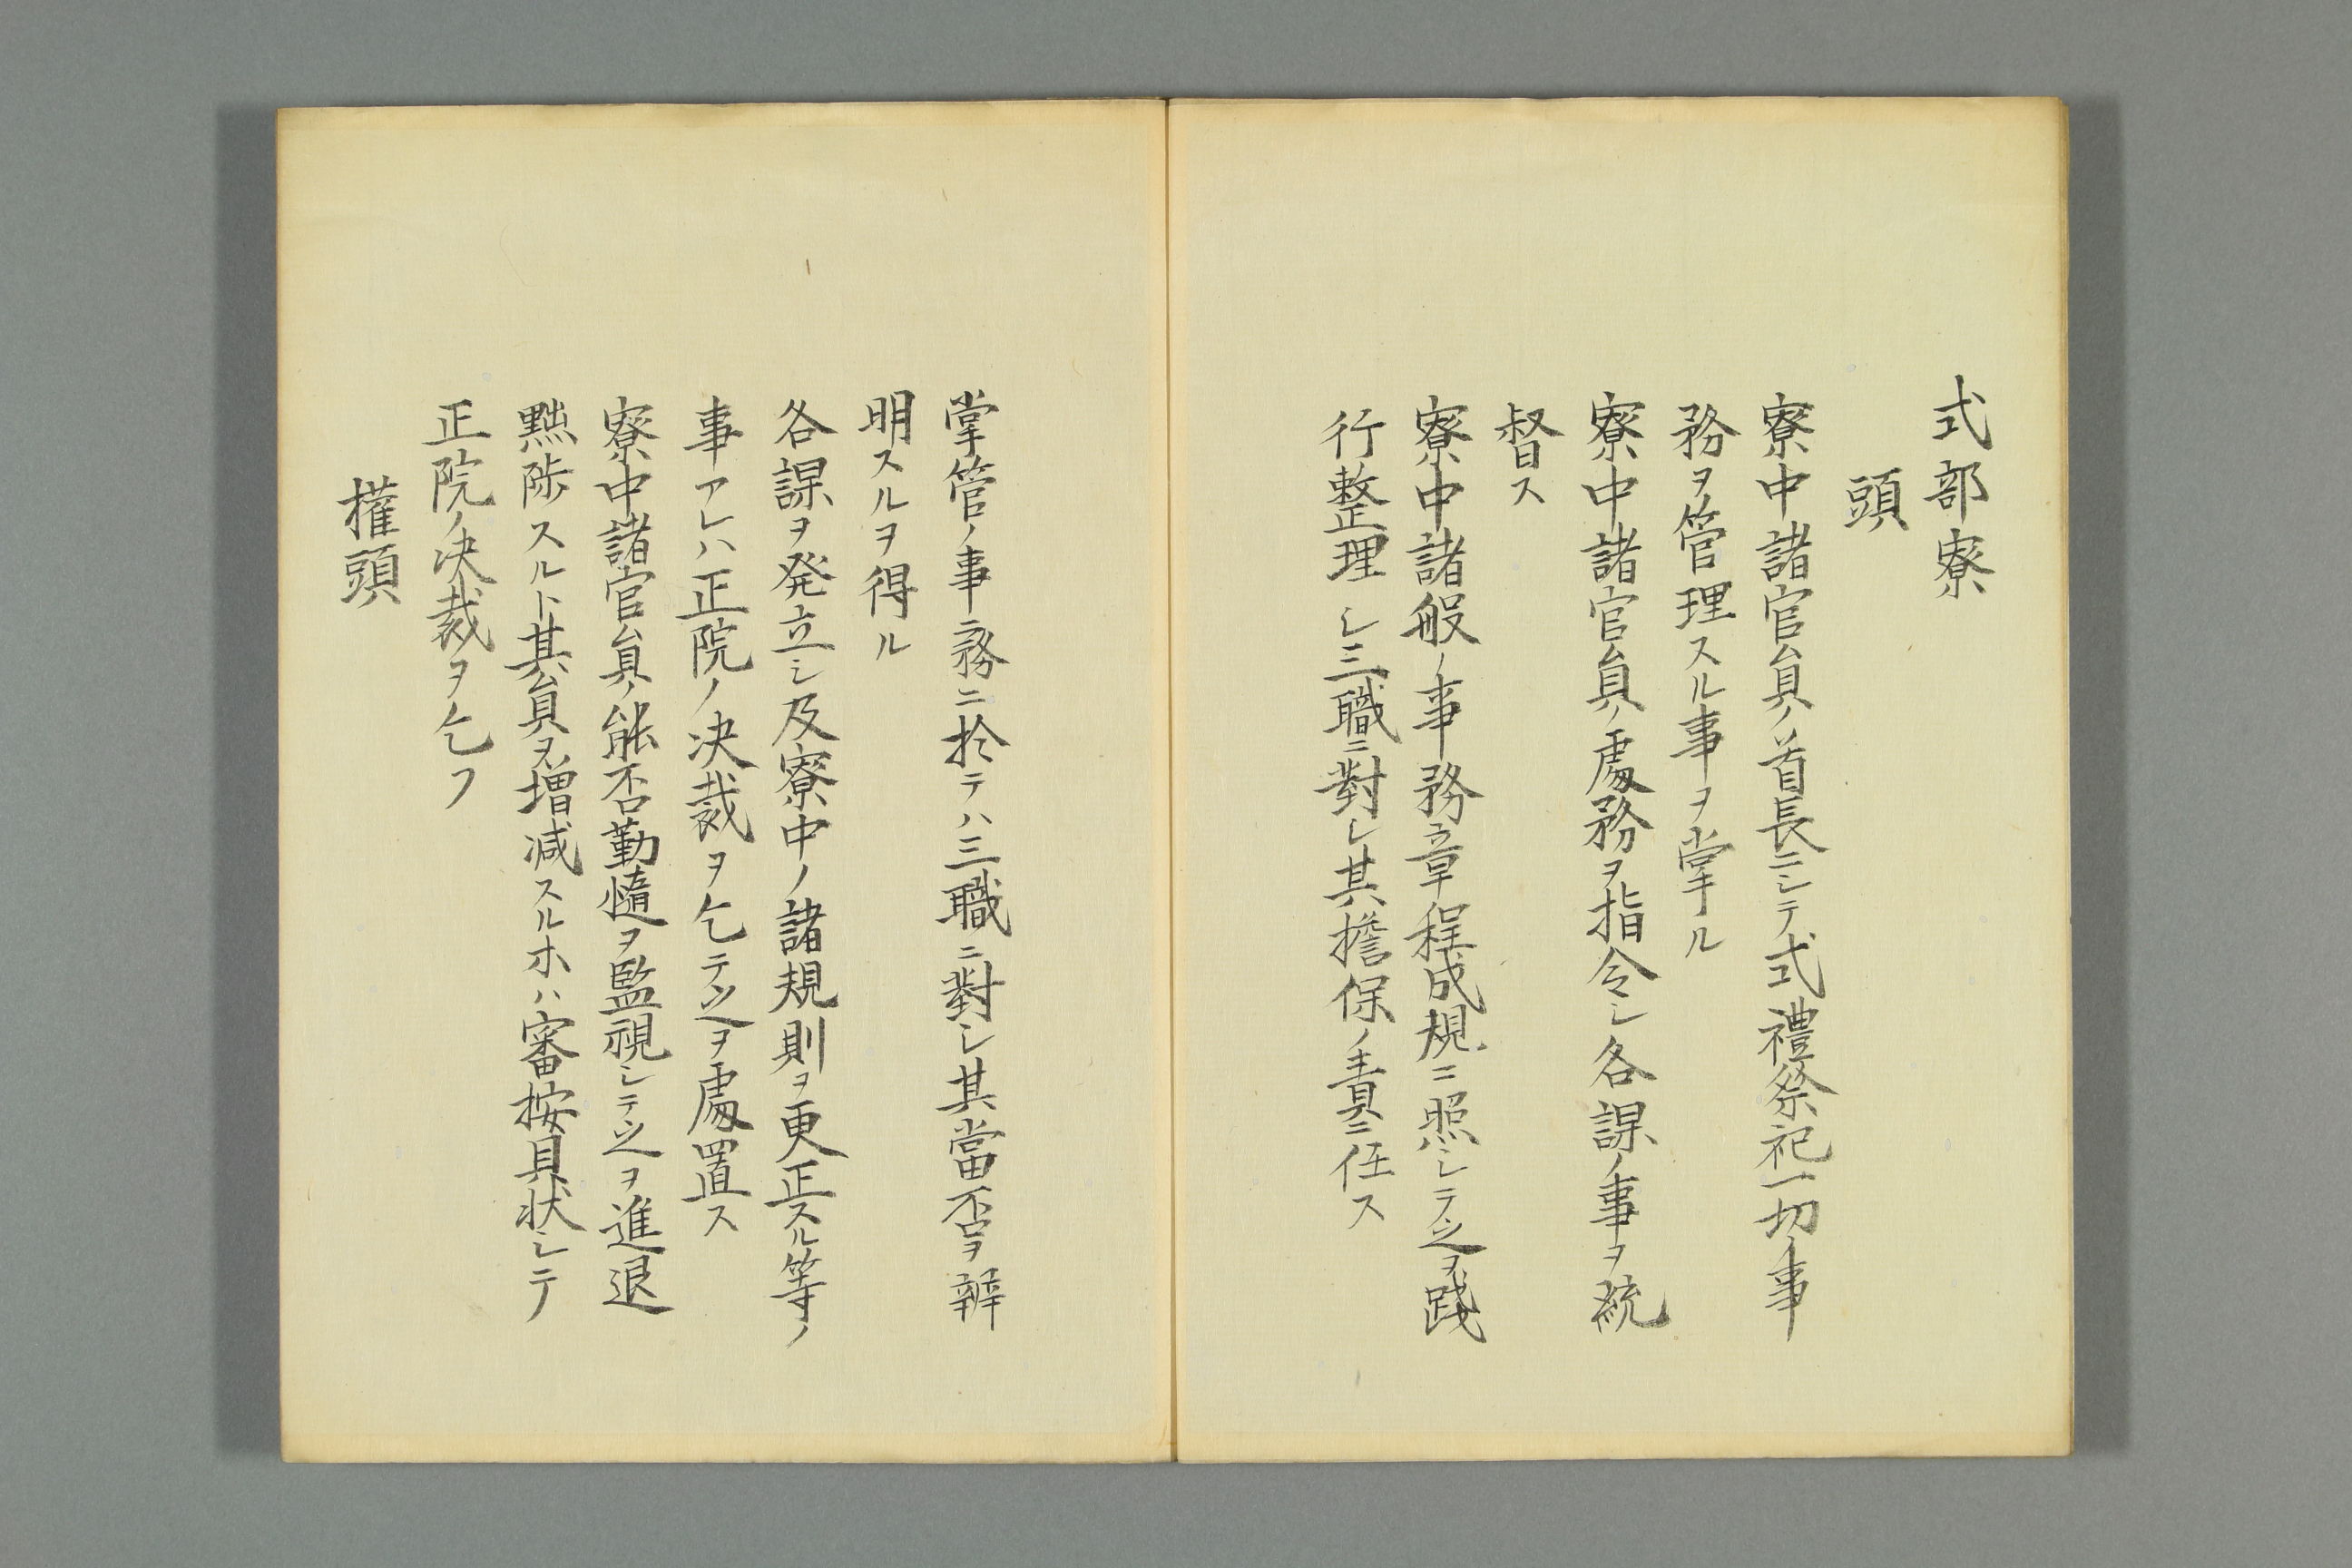 式部寮
頭
寮中諸官員ノ首長ニシテ式禮祭祀一切ノ事
務ヲ管理スル事ヲ掌ル
寮中諸官員ノ處務ヲ指令シ各課ノ事ヲ統
督ス
寮中諸般ノ事務章程成規ニ照シテ之ヲ踐
行整理シ三職ニ對シ其擔保ノ責ニ任ス
掌管ノ事務ニ於テハ三職ニ對シ其當否ヲ辨
明スルヲ得ル
各課ヲ発立シ及寮中ノ諸規則ヲ更正スル等ノ
事アレハ正院ノ決裁ヲ乞テ之ヲ處置ス
寮中諸官員ノ能否勤惰ヲ監視シテ之ヲ進退
黜陟スルト其員ヲ増減スルホハ審按具状シテ
正院ノ決裁ヲ乞フ
權頭